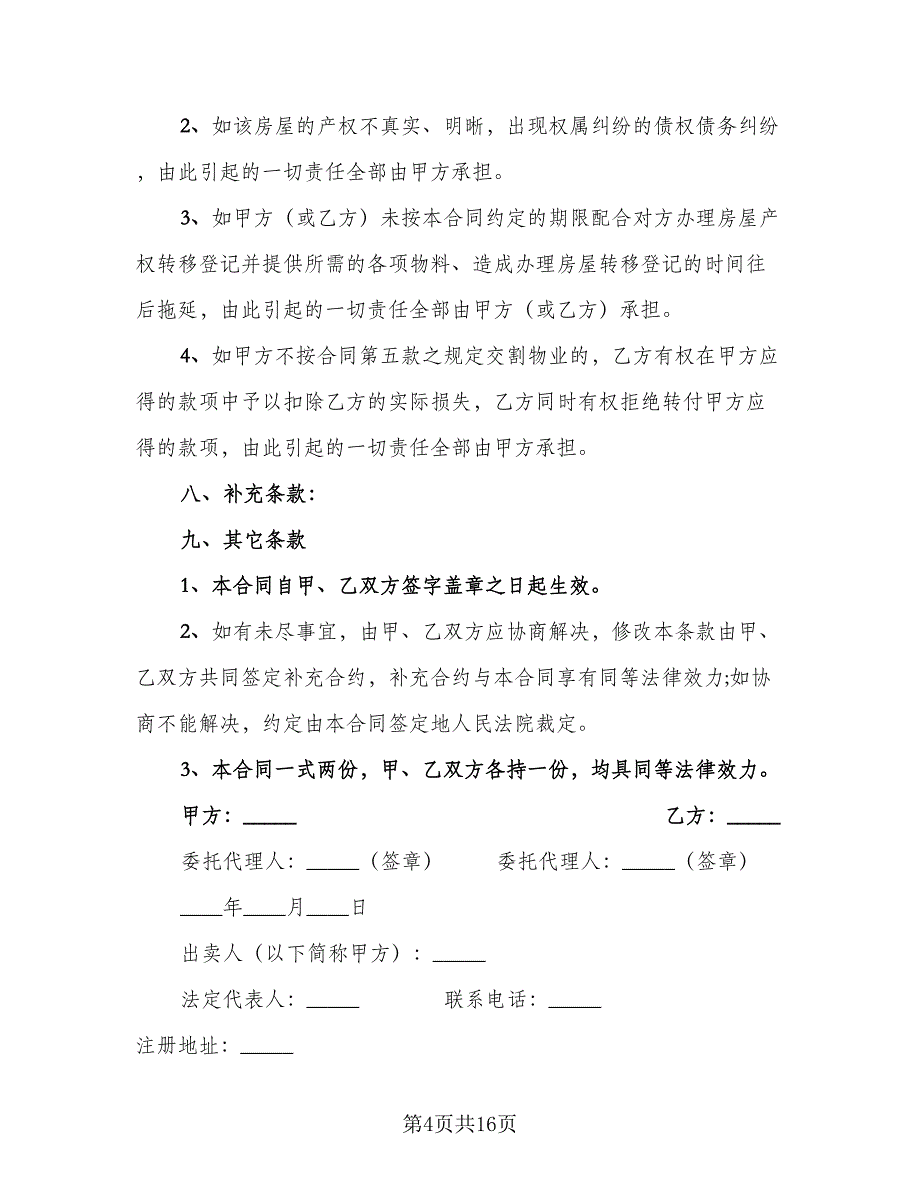 2、如该房屋的产权不真实、明晰，出现权属纠纷的债权债务纠纷
，由此引起的一切责任全部由甲方承担。
3、如甲方（或乙方）未按本合同约定的期限配合对方办理房屋产
权转移登记并提供所需的各项物料、造成办理房屋转移登记的时间往
后拖延，由此引起的一切责任全部由甲方（或乙方）承担。
4、如甲方不按合同第五款之规定交割物业的，乙方有权在甲方应
得的款项中予以扣除乙方的实际损失，乙方同时有权拒绝转付甲方应
得的款项，由此引起的一切责任全部由甲方承担。
八、补充条款：
九、其它条款
1、本合同自甲、乙双方签字盖章之日起生效。
2、如有未尽事宜，由甲、乙双方应协商解决，修改本条款由甲、
乙双方共同签定补充合约，补充合约与本合同享有同等法律效力;如协
商不能解决，约定由本合同签定地人民法院裁定。
3、本合同一式两份，甲、乙双方各持一份，均具同等法律效力。
甲方：_____ 乙方：_____
委托代理人：_____（签章） 委托代理人：_____（签章）
____年____月____日
出卖人（以下简称甲方）：_____
法定代表人：_____ 联系电话：_____
注册地址：_____
第4页共16页